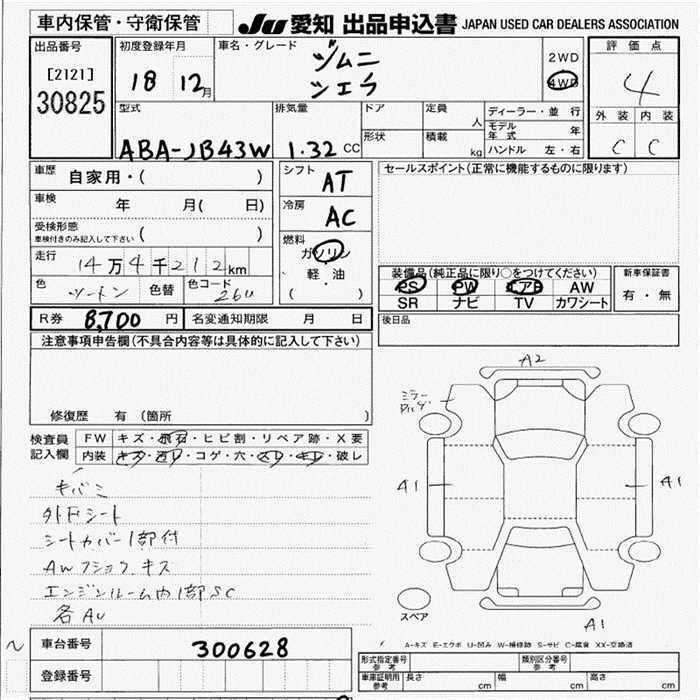 車内保管・守衛保管
JU 愛知 出品申込書 JAPAN USED CAR DEALERS ASSOCIATION
出品番号
[2121]
30825
初度登録年月
18 12月
車名・グレード
ジムニ
シエラ
2WD
4WD
評価点
4
外装 内装
C C
型式
ABA-JB43W
排気量
1.32 CC
ドア
形状
定員 人
積載 kg
ディーラー・並行
モデル年式 年
ハンドル 左・右
車歴
自家用・( )
車検 年 月( 日)
受検形態
車検付きのみ記入して下さい ( )
走行
14万4千212km
色
ツートン
色替
色コード
26U
シフト
AT
冷房
AC
燃料
ガソリン
・
軽・油
( )
セールスポイント(正常に機能するものに限ります)
装備品(純正品に限り○をつけてください)
PS PW エアB AW
SR ナビ TV カワシート
新車保証書
有・無
R券 8,700 円
名変通知期限 月 日
後日品
注意事項申告欄(不具合内容等は具体的に記入して下さい)
修復歴 有(箇所 )
検査員
記入欄
FW キズ・飛石・ヒビ割・リペア跡・X要
内装 キズ・汚レ・コゲ・穴・スレ・キレ・破レ
キバミ
外Fシート
シートカバー1部付
AWフショク、キズ
エンジンルーム内1部SC
各AU
A2
ミラー
A1
A1
スペア
A1
A-キズ E-エクボ U-凹み W-補修跡 S-サビ C-腐食 XX-交換済
車台番号 300628
登録番号
形式指定番号
参考
類別区分番号
参考
車庫証明用
参考
長さ cm
幅 cm
高さ cm